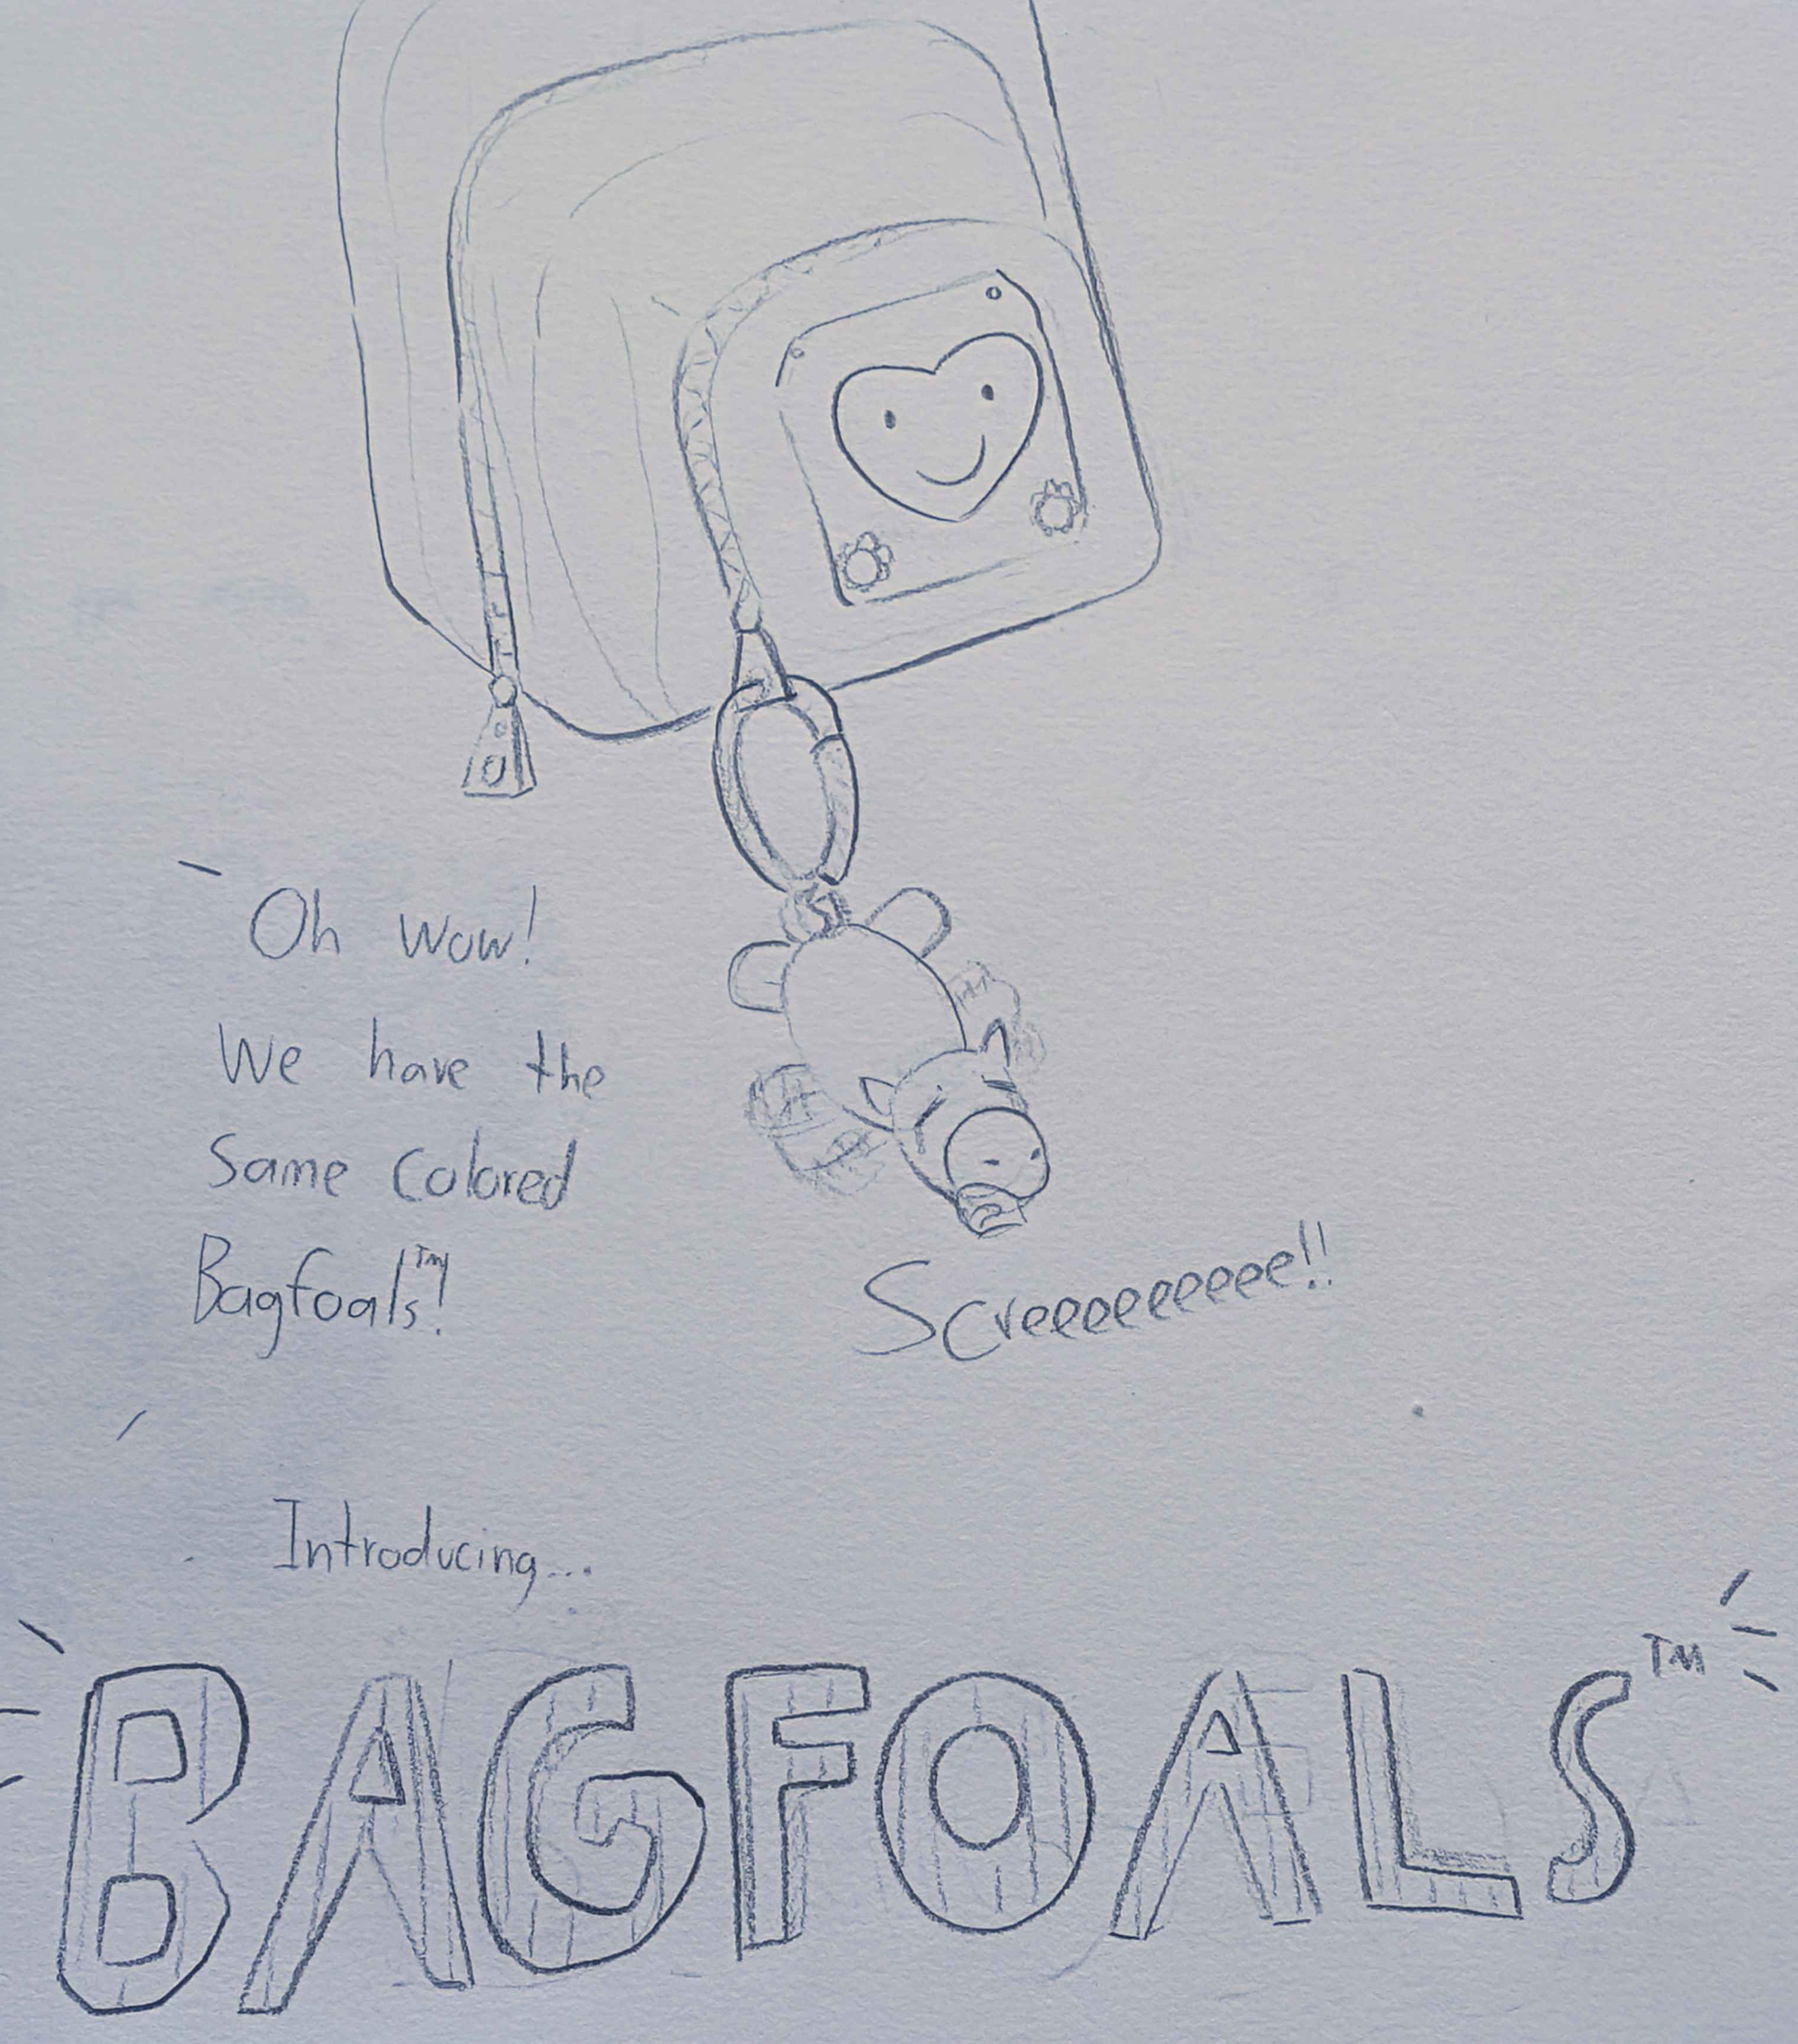 Oh wow!
We have the
Same Colored
Bagfoals™!
Screeeeeeeeee!!
Introducing...
BAGFOALS™